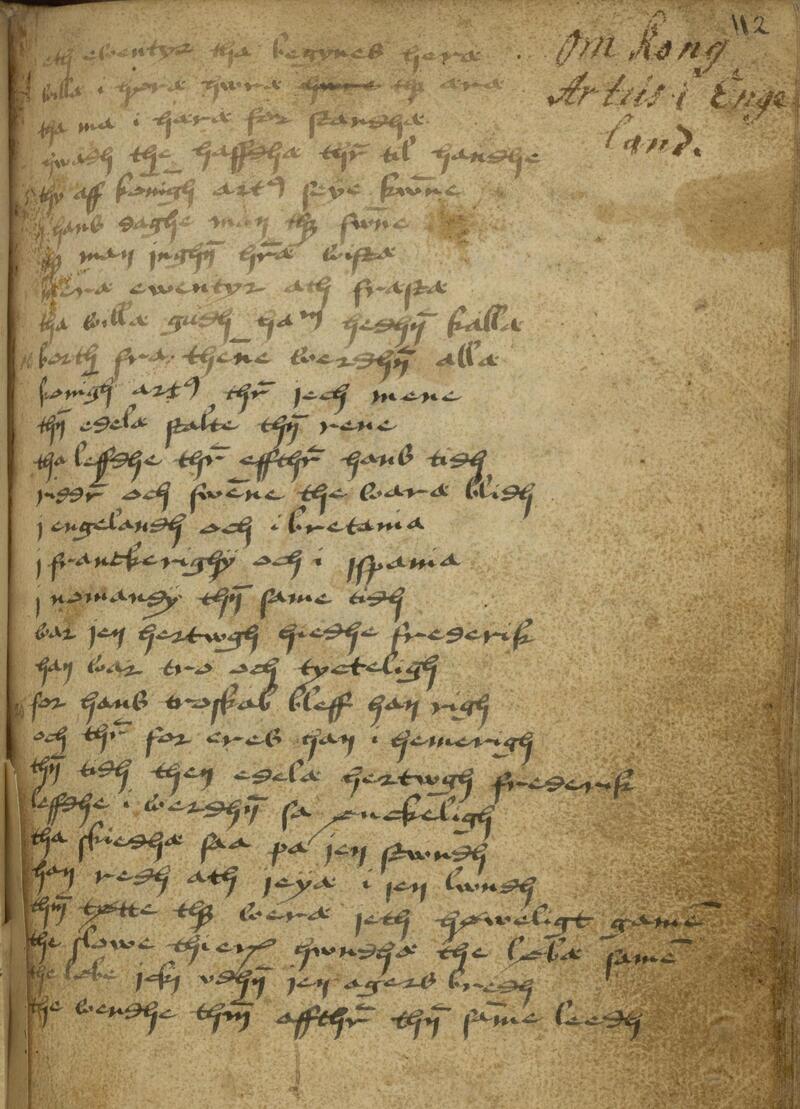 112
Om Kong
Artus i Enge
land.
eth ewentyr tha begynes heræ
willæ i høræ hwræ hwræ thȝ æræ
tha ma i hæræ for standhæ
hwadh the haffdhæ thr̄ til handhe
thy aff koningh artꝰ seye kwn̄e
j hans daghe man thȝ swn̄e
man jnghn̄ hr̄æ wistæ
meræ ewentyr ath fræstæ
tha willæ gudh haᵐ hedhn̄ kallæ
borth fra then̄e werdhn̄ allæ
koningh artꝰ thr̄ jech mene
thn̄ edelæ stalte thn̄ rene
tha leffdhe thr̄ effthr̄ hans tidh
riddr̄ och swēne the waræ blidh
j engelandh och i bretania
j franckerighy och i jspania
j nomandy thn̄ same tidh
war jen hertwgh hiedhe frederik
han war tro och tycteligh
for hans troskab bleff han righ
och thr̄ for eres han i hemerigh
thn̄ tidh then edelæ hertwgh frederik
leffdhe i werdhn̄ sa ønckeligh
tha skiedhæ saa pa jen stwndh
han redh ath jeyæ i jen lwndh
thm̄ tøtte thȝ weræ jeth høweligt gamē
the slowe thieræ hwndhæ the løbæ samē
the løbe jckj vdhn̄ jen agers bredh
the wendhe thm̄ affthr̄ thn̄ sāme leedh